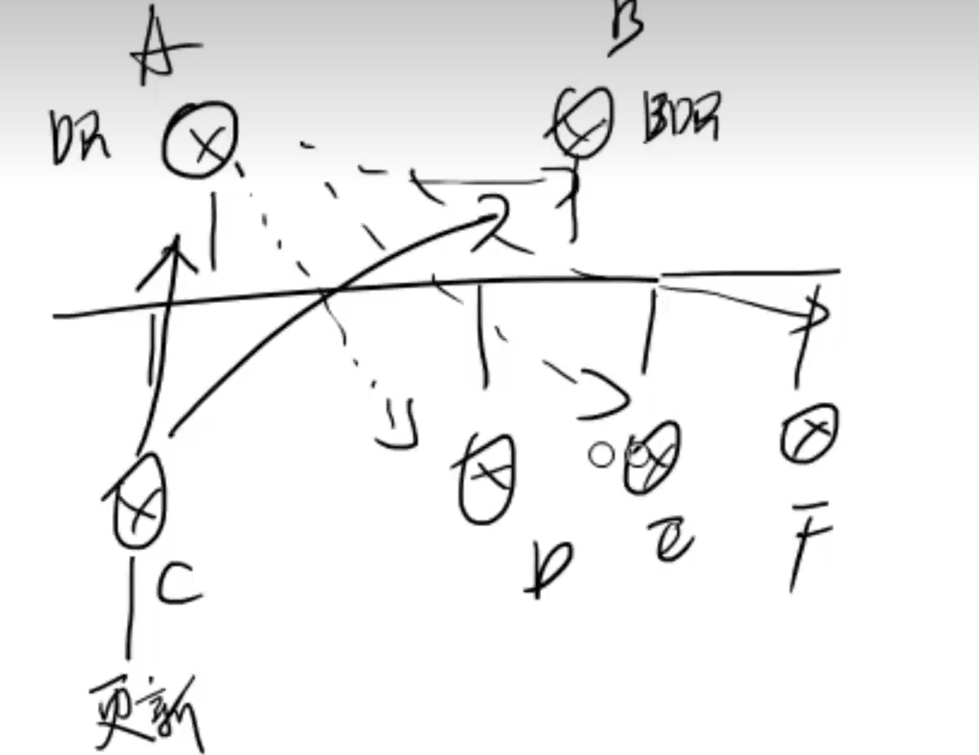 A
B
DR
BDR
C
D
E
F
更新